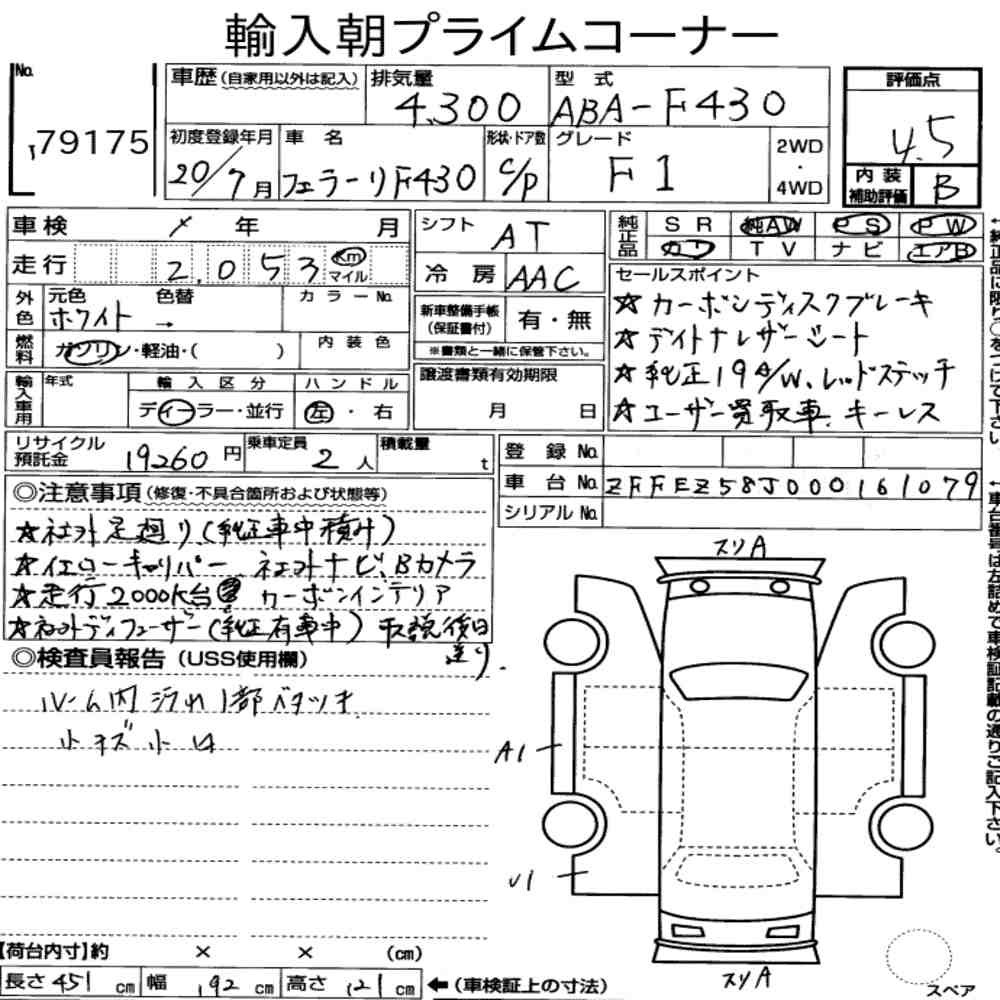 輸入朝プライムコーナー
No. 79175
車歴(自家用以外は記入) 排気量 4,300 型式 ABA-F430
初度登録年月 20/7月 車名 フェラーリF430 形状・ドア数 C/P グレード F1 2WD・4WD
評価点 4.5
内装補助評価 B
車検 / 年 月
走行 2,053 km マイル
外色 元色 ホワイト 色替 → カラーNo.
燃料 ガソリン・軽油・( ) 内装色
輸入車用 年式 輸入区分 ディーラー・並行 ハンドル 左・右
シフト AT
冷房 AAC
新車整備手帳(保証書付) 有・無
※書類と一緒に保管下さい。
譲渡書類有効期限 月 日
純正品 SR 純AW PS PW
カワ TV ナビ エアB
セールスポイント
☆カーボンディスクブレーキ
☆デイトナレザーシート
☆純正19A/W、レッドステッチ
☆ユーザー買取車、キーレス
リサイクル預託金 19260円 乗車定員 2人 積載量 t
登録No.
車台No. ZFFEZ58J000161079
シリアルNo.
◎注意事項(修復・不具合箇所および状態等)
☆社外足廻り(純正車中積み)
☆イエローキャリパー 社外ナビ、Bカメラ
☆走行2000K台 カーボンインテリア
☆社外ディフューザー(純正有車中) 取説後日送り.
◎検査員報告(USS使用欄)
ルーム内汚れ1部ベタツキ
小キズ小凹
スリA
A1
U1
スリA
スペア
【荷台内寸】約 × × (cm)
長さ451cm 幅192cm 高さ121cm ←(車検証上の寸法)
↑純正品に限り○をつけて下さい。
↑車台番号は左詰めで車検証記載の通りご記入下さい。